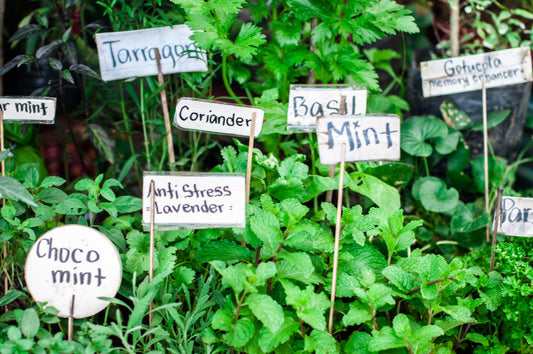 Tarragon
Gotucola
memory enhancer
Coriander
Basil
mint
Mint
Anti Stress
Lavender
Choco
mint